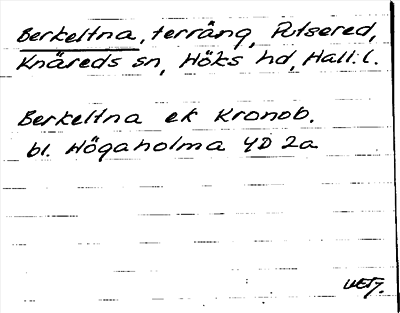 Berkeltna, terräng, Putsered,
Knäreds sn, Höks hd, Hall. l.
Berkeltna ek Kronob.
bl. Högaholma 4D 2a